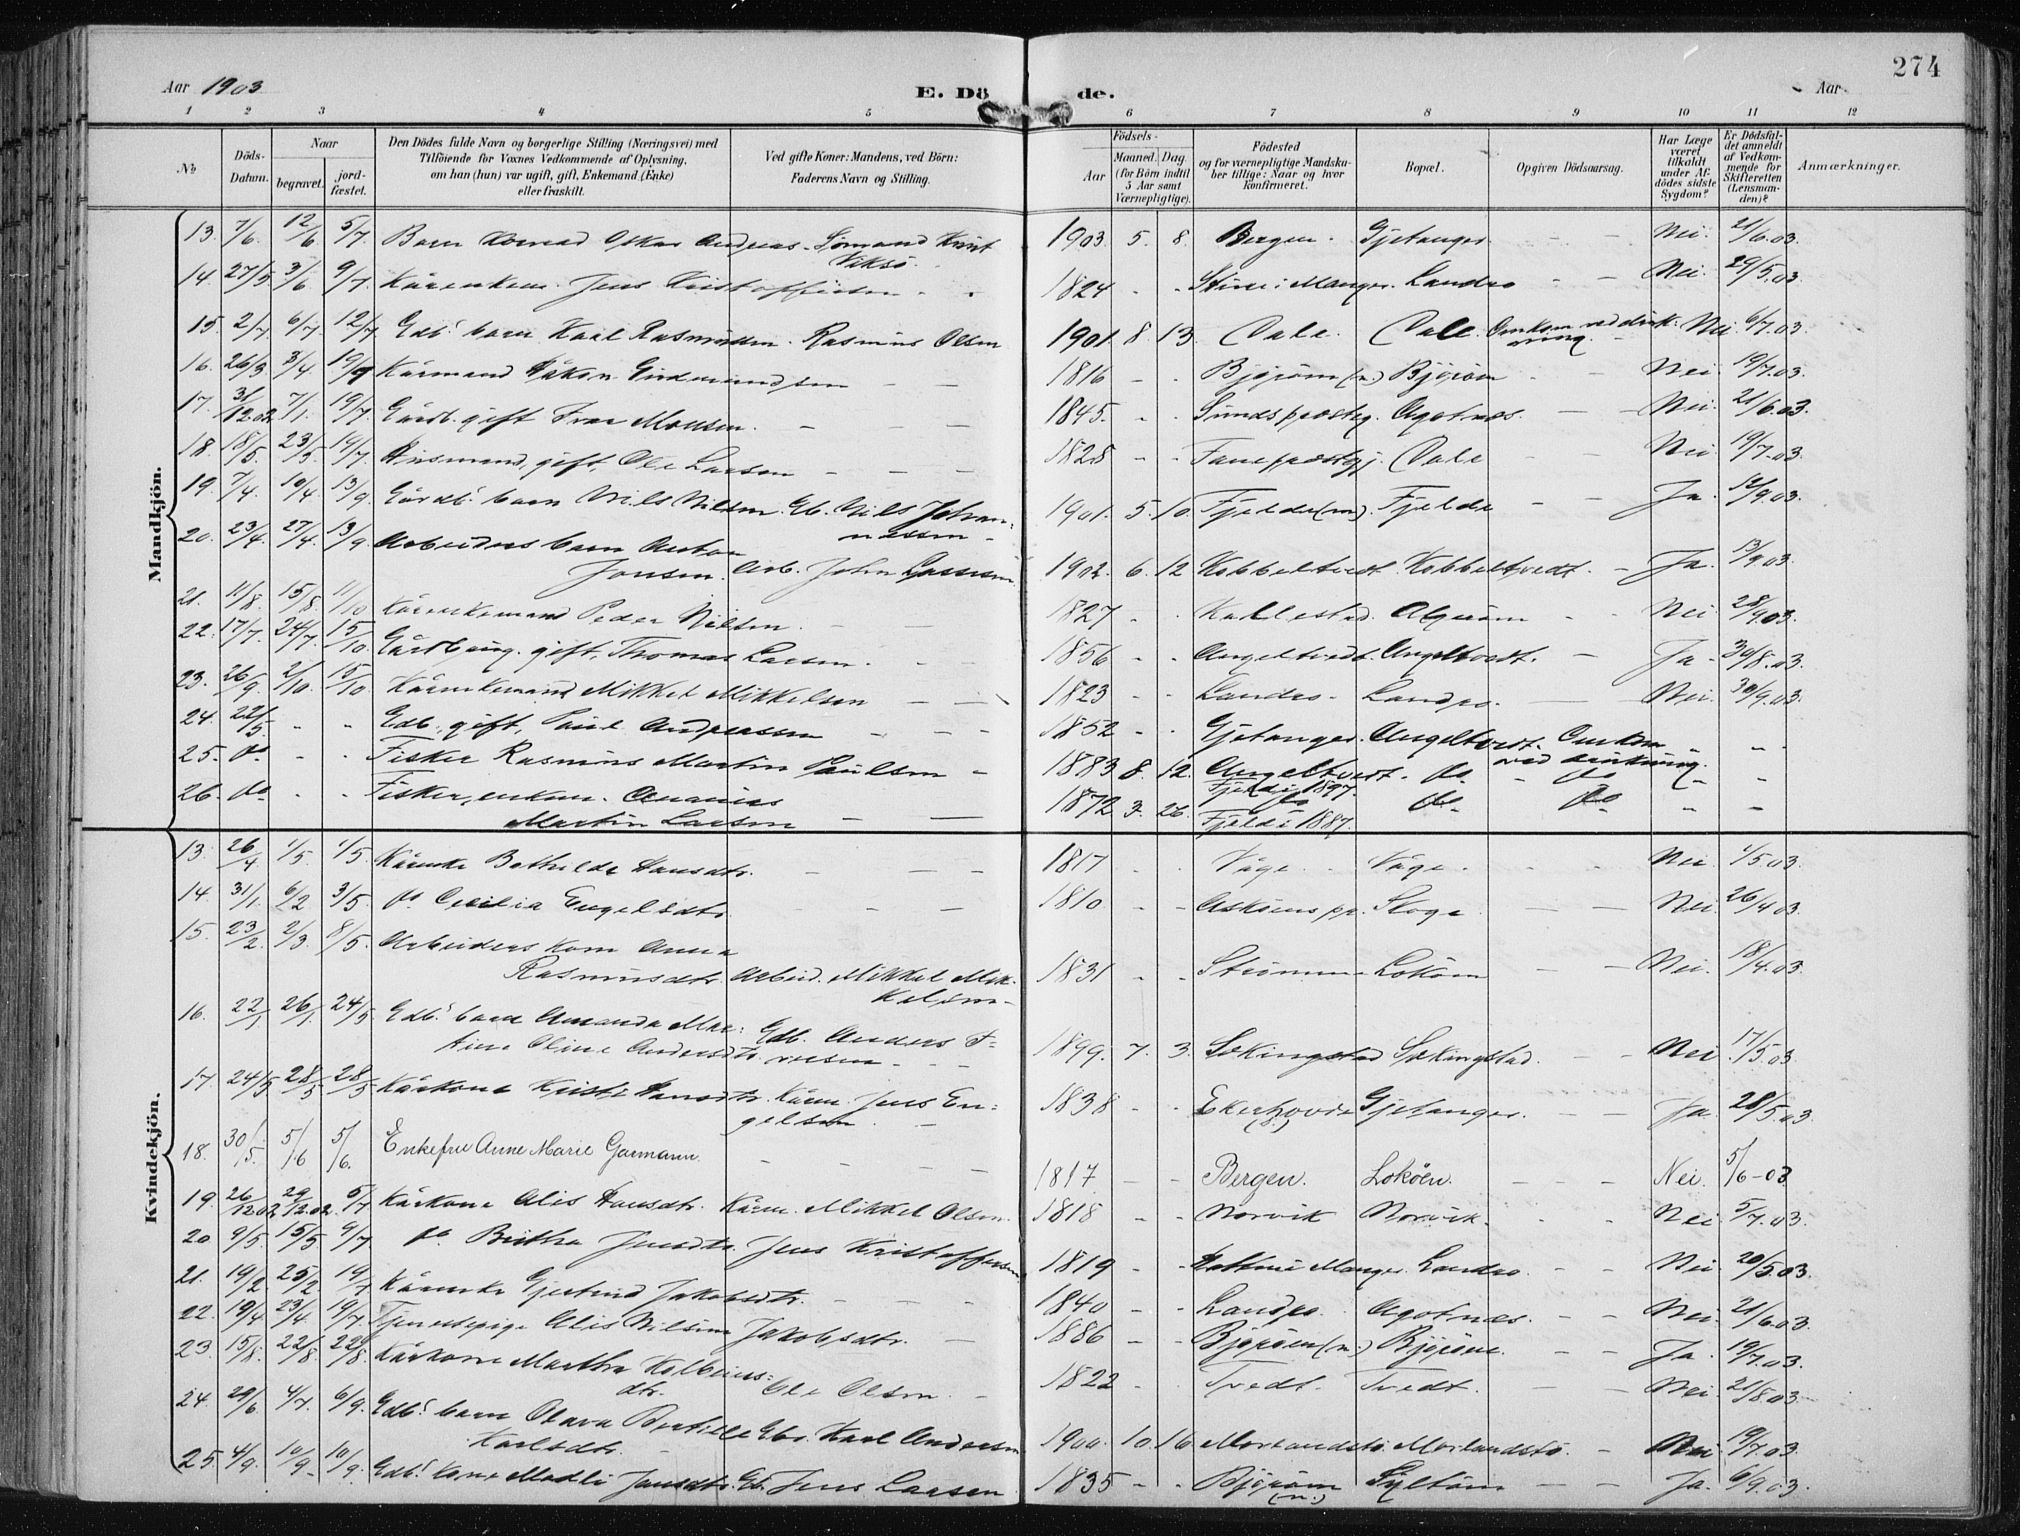 274
Aar 1903
E. Dö de.
Aar
1 2 3 4 5 6 7 8 9 10 11 12
No
Döds-Datum.
Naar
begravet.
jord-fæstet.
Den Dödes fulde Navn og borgerlige Stilling (Næringsvei) med
Tilföiende for Voxnes Vedkommende af Oplysning,
om han (hun) var ugift, gift, Enkemand (Enke)
eller fraskilt.
Ved gifte Koner: Mandens, ved Börn:
Faderens Navn og Stilling.
Födsels-
Aar
Maaned. Dag.
(for Börn indtil
5 Aar samt
Værnepligtige).
Födested
og for værnepligtige Mandsku-
ber tillige: Naar og hvor
konfirmeret.
Bopæl.
Opgiven Dödsaarsag.
Har Læge
været
tilkaldt
under Af-
dödes sidste
Sygdom?
Er Dödsfal-
det anmeldt
af Vedkom-
mende for
Skifteretten
(Lensman-
den)?
Anmærkninger.
Mandkjön.
13. 7/6. 12/6 5/7. Barn Konrad Oskar Andreas. Sömand Knut Viksö. 1903. 5. 8. Bergen. Gjetanger. Nei. 21/6.03.
14. 27/5 3/6. 9/7. Jens Kristoffersen 1824 Manger. Landro Nei. 29/5.03.
15. 2/7. 6/7. 12/7 Gdb.s barn Karl Rasmussen. Rasmus Olsen 1901. 8. 13. Dale. Dale. Omkom ved druk-ning. Nei. 6/7.03.
16. 26/3 3/4. 19/7 Kårmand Håkon Gudmundsen 1816 Björöen (n.) Björöen Nei. 19/7.03.
17. 31/12.02. 7/1. 19/7. Gårdb. gift Ivar Monsen. 1845. Sunds præsteg. Agotnæs. Nei. 21/6.03.
18. 18/5. 23/5. 19/7. Husmand, gift, Ole Larsen 1828 Fane præstegj. Dale Nei. 19/7.03.
19. 7/4. 10/4. 13/9. Gårdb.s barn Nils Nilsen. Gb. Nils Johan-nessen 1901. 5. 10. Fjelde (m). Fjelde Ja. 12/9.03.
20. 23/4. 27/4. 13/9. Arbeiders barn Anton
Jonsen. Arb. John Lassesen. 1902. 6. 12 Kobbeltvedt. Kobbeltvedt. Ja. 13/9.03.
21. 11/8. 15/8. 11/10 Kårenkemand Peder Nilsen. 1827 Kallestad. Algröen Nei 28/9.03.
22. 17/7. 24/7. 15/10. gift, Thomas Larsen. 1856 Angeltvedt. Angeltvedt. Ja. 30/8.03.
23. 26/9. 2/10. 15/10. Kårenkemand Mikkel Mikkelsen 1823 Landro. Landro. Nei. 30/9.03.
24. 22/5 Gdb., gift, Paul Andreassen 1852 Gjetanger. Angeltvedt. Omkom ved drukning.
25. do Fisker Rasmus Martin Paulsen 1883 8. 12. Angeltvedt. do do
Fjeld i 1897.
26. do Fisker, enkem. Ananias
Martin Larsen 1872 3. 26. do do do
Fjeld i 1887.
Kvindekjön.
13. 26/4 1/5. 1/5. Kårenke Bothilde Hansdtr. 1817 Våge. Våge. Nei 1/5.03.
14. 31/1. 6/2 3/5. do Cecilia Engelsdtr. 1810 Asköens pr. Skoge. Nei. 26/4.03.
15. 23/2. 2/3. 8/5. Arbeiders kone Anna
Rasmusdtr. Arbeid. Mikkel Mik-kelsen 1831 Strömmen Loköen Nei. 18/4.03.
16. 22/1 26/1. 24/5 Gdb.s barn Amanda Mar-
tine Oline Andersdtr. Gdb. Anders I-versen 1899. 7. 3. Sekingstad Sekingstad. Nei. 17/5.03.
17. 24/5 28/5 28/5 Kårkone Kristi Hansdtr. Kårm. Jens En-gelsen 1838 Ekerhovde (s.) Gjetanger. Ja. 28/5.03.
18. 30/5. 5/6 5/6. Enkefrue Anne Marie Garmann. 1817 Bergen. Loköen. Nei. 5/6-03
19. 26/12.02. 29/12.02. 5/7 Kårkone Alis Hansdtr. Kårm. Mikkel Olsen. 1818 Norvik Norvik. Nei 5/7.03.
20 9/5. 15/5 9/7 do Britha Jensdtr. Jens Kristoffersen 1819 Manger. Landro. Nei. 20/5.03.
21. 19/2. 25/2. 19/7 Kårenke Gjertrud Jakobsdtr. 1840 Landro. Agotnæs. Nei. 21/6.03.
22. 19/4 23/4. 19/7. Tjenestepige Alis Nilsine Jakobsdtr. 1886 Björöen (n.) Björöen. Ja. 19/7.03.
23. 15/8. 22/8. 22/8. Kårkone Martha Kolbeins-
dtr. Ole Olsen. 1822 Tvedt. Tvedt. Nei. 21/8.03.
24. 29/6 4/7. 6/9. Gdb.s barn Olava Bertille
Karlsdtr. Gbr. Karl Andersen 1900. 10. 16. Morlandstö. Morlandstö. Nei 19/7.03.
25. 4/9. 10/9. 10/9. Gdb.s kone Madli Jansdtr. Gb. Jens Larsen 1835 Björöen (n.) Syltöen Ja. 6/9.03.